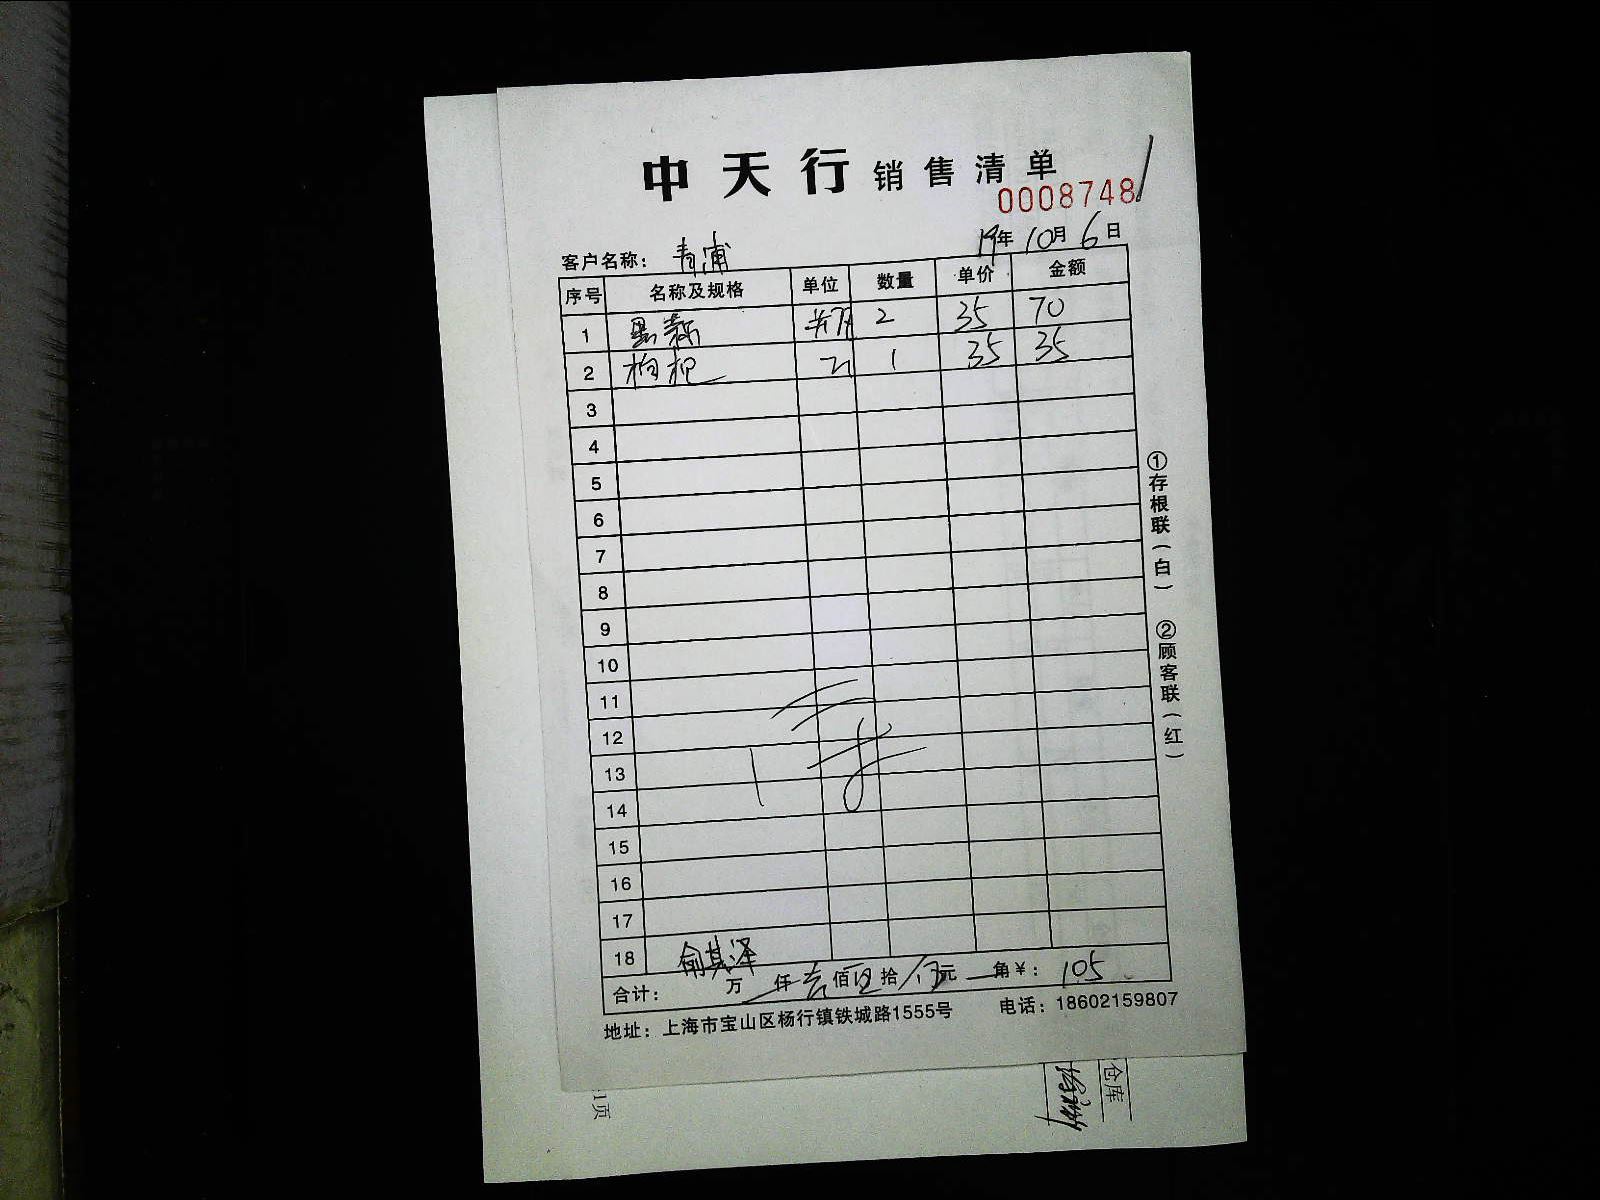 中天行 销售清单
0008748
19年10月6日
客户名称：青浦
序号 名称及规格 单位 数量 单价 金额
1 2 35 70
2 枸杞 1 35 35
3
4
5
6
7
8
9
10
11
12
13
14
15
16
17
18 俞其泽
合计： 万 仟 壹 佰 拾 伍 元 角 ¥： 105
地址：上海市宝山区杨行镇铁城路1555号 电话：18602159807
①存根联（白） ②顾客联（红）
1页
仓库